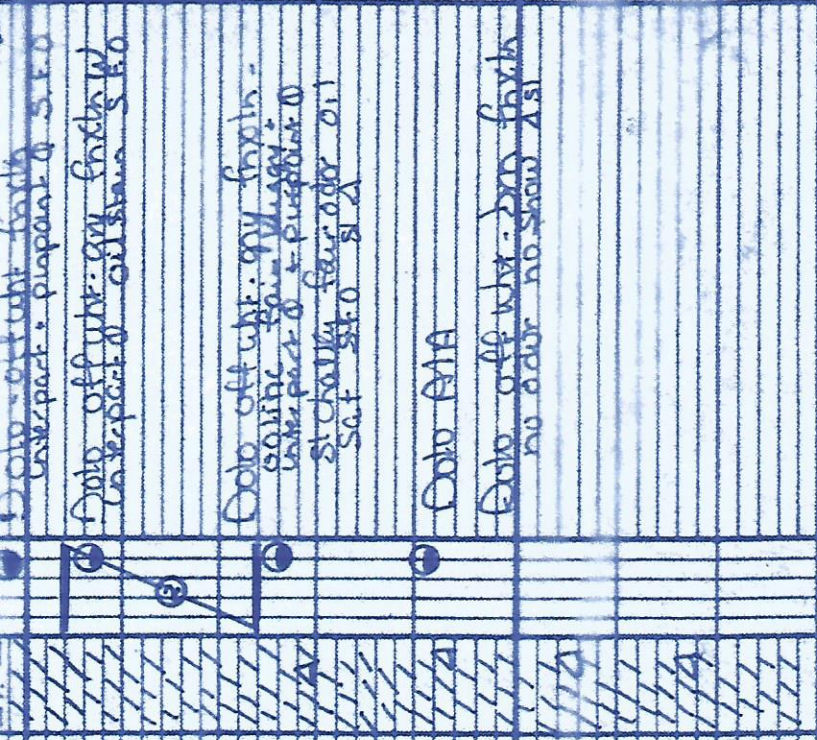 Dolo - off wht fnxln
interpart + pinpoint Ø S.F.O
Dolo off wht. gry fnxln w
interpart Ø oil stain S F.O
②
Dolo off wht. gry fnxln -
interpart Ø + pinpoint Ø
sl chalky fair odor
sat SFO sl Δ
Dolo A/A
Dolo off wht. fnxln
no odor no show Δsl
Δ
Δ
Δ
Δ